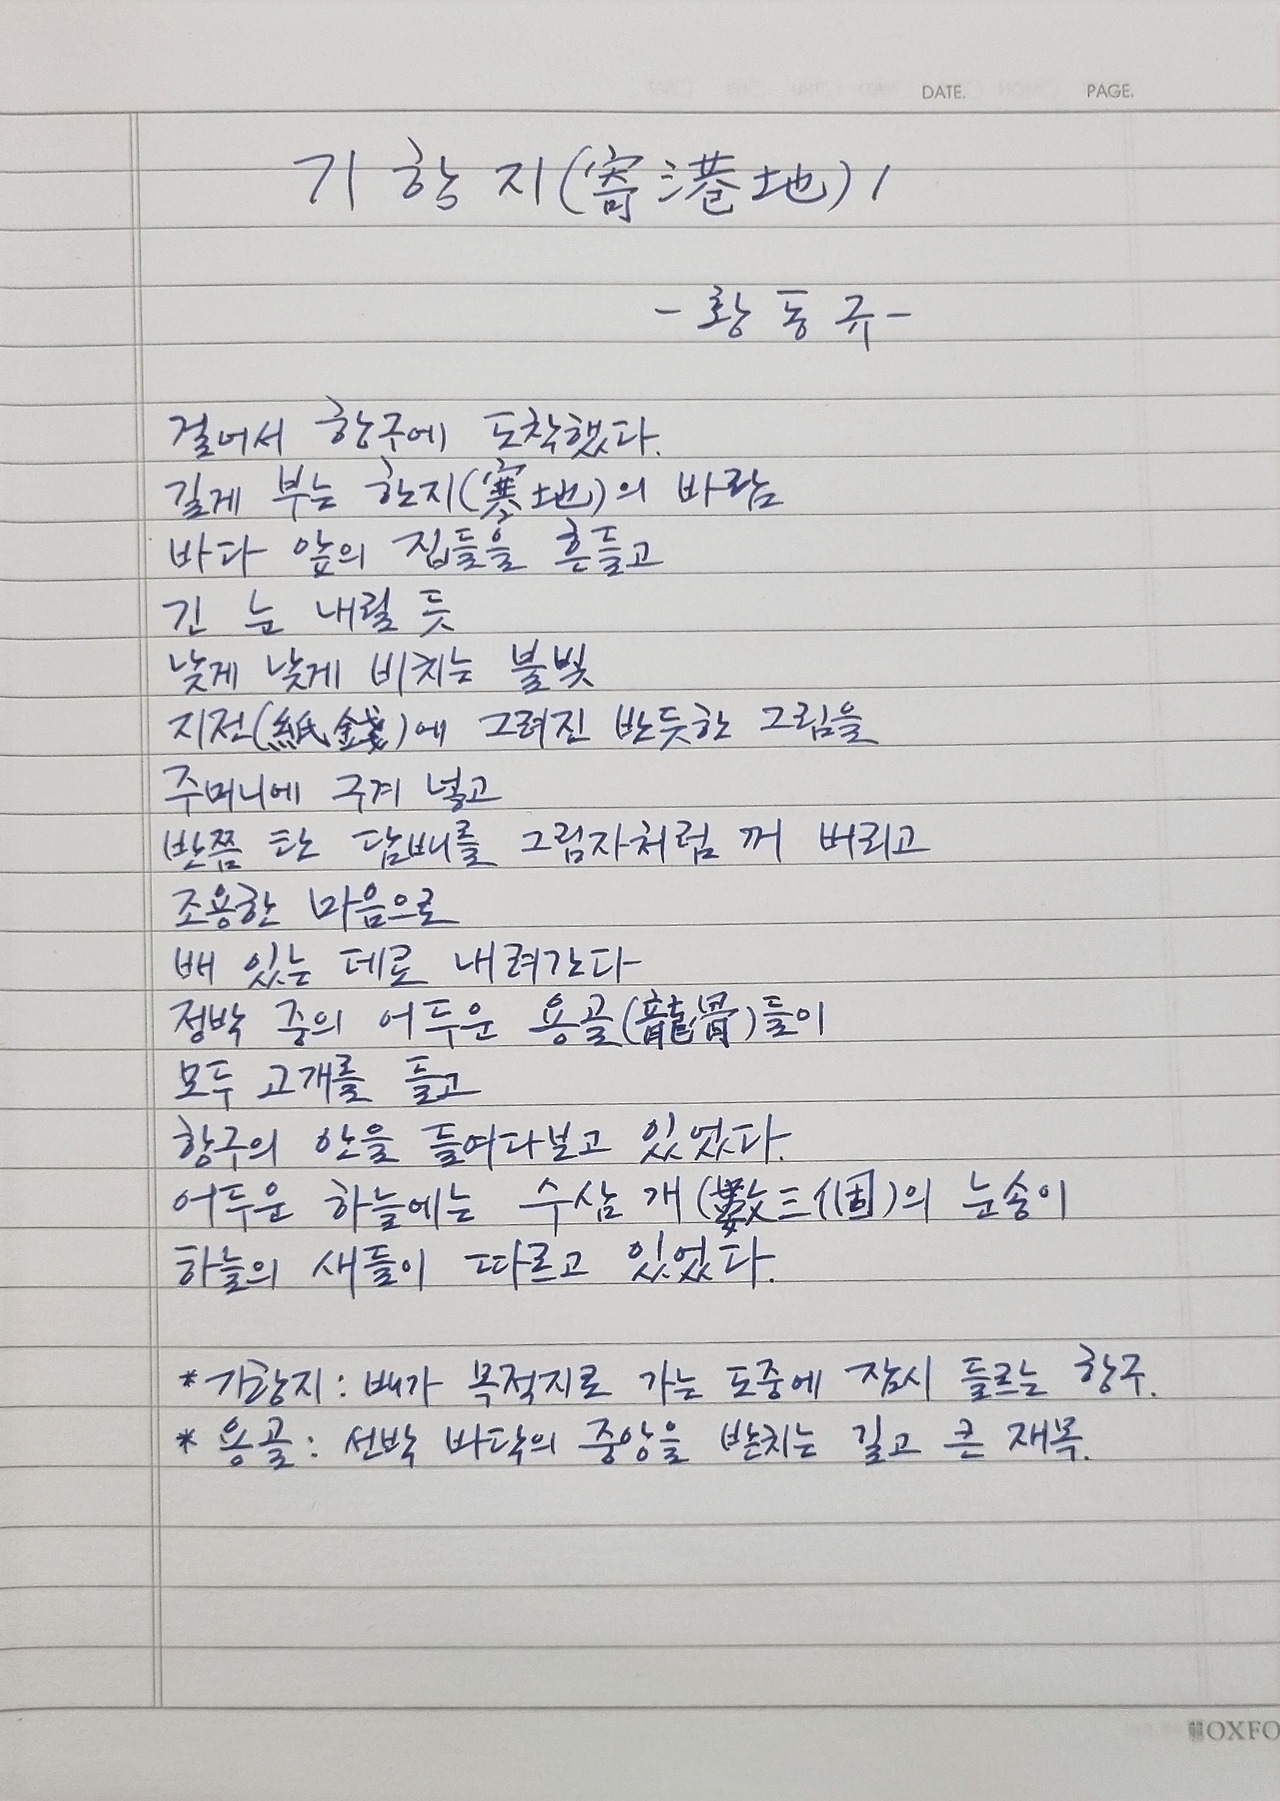 DATE. PAGE.
기항지(寄港地) 1
- 황동규 -
걸어서 항구에 도착했다.
길게 부는 한지(寒地)의 바람
바다 앞의 집들을 흔들고
긴 눈 내릴 듯
낮게 낮게 비치는 불빛
지전(紙錢)에 그려진 반듯한 그림을
주머니에 구겨 넣고
반쯤 탄 담배를 그림자처럼 꺼 버리고
조용한 마음으로
배 있는 데로 내려간다
정박 중의 어두운 용골(龍骨)들이
모두 고개를 들고
항구의 안을 들여다보고 있었다.
어두운 하늘에는 수삼 개(數三個)의 눈송이
하늘의 새들이 따르고 있었다.
* 기항지 : 배가 목적지로 가는 도중에 잠시 들르는 항구.
* 용골 : 선박 바닥의 중앙을 받치는 길고 큰 재목.
OXFO